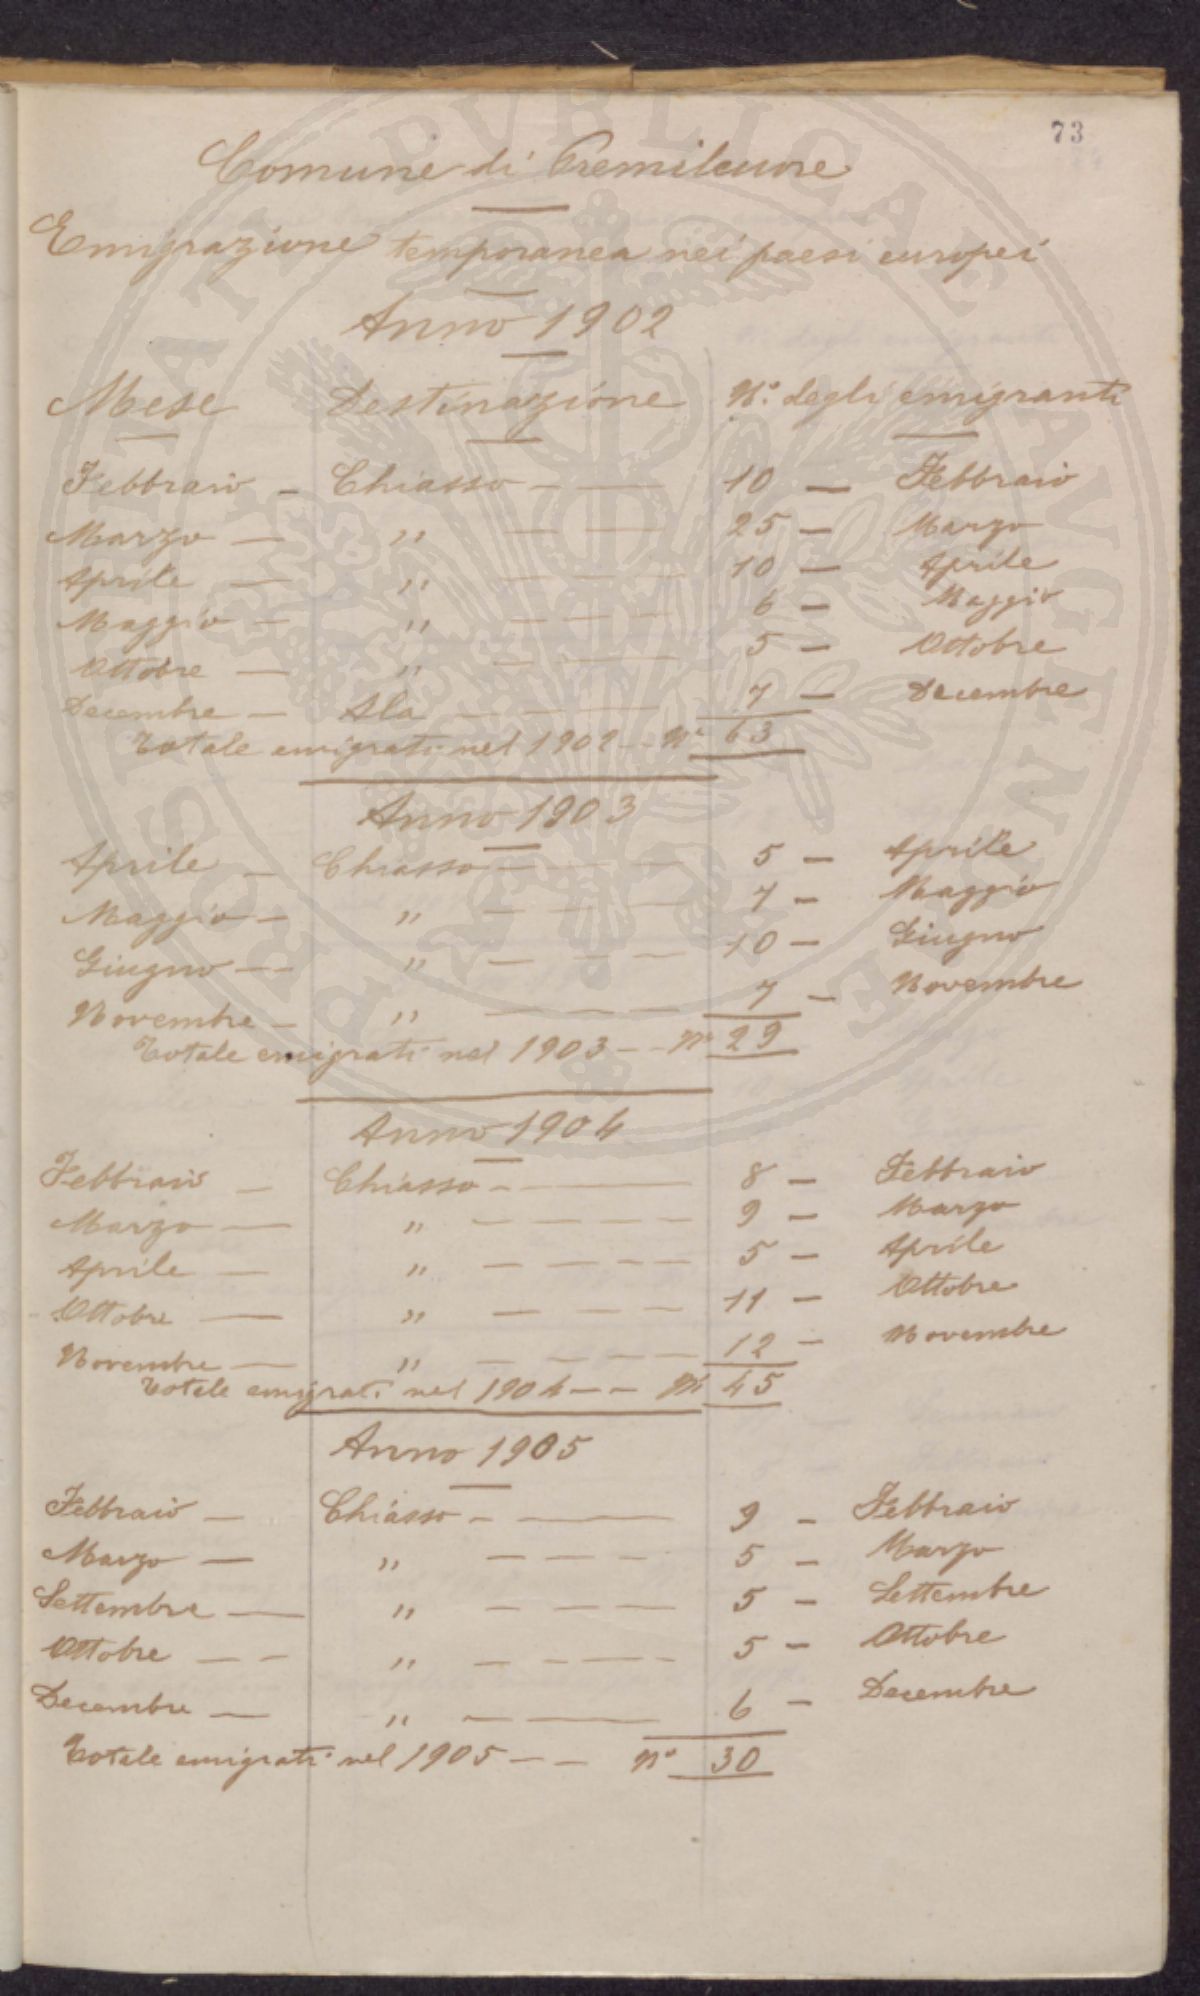 73
Comune di Premilcuore
Emigrazione temporanea nei paesi europei
Anno 1902
Mese Destinazione N.° degli emigranti
Febbraio - Chiasso - - 10 - Febbraio
Marzo - " - - 25 - Marzo
Aprile - " - - - 10 - Aprile
Maggio - " - - - 6 - Maggio
Ottobre - " - - - 5 - Ottobre
Decembre - Ala - - - 7 - Decembre
Totale emigrati nel 1902 - - N° 63
Anno 1903
Aprile - Chiasso - - - 5 - Aprile
Maggio - " - - - 7 - Maggio
Giugno - - " - - - 10 - Giugno
Novembre - " - - - - 7 - Novembre
Totale emigrati nel 1903 - - N° 29
Anno 1904
Febbraio - Chiasso - - 8 - Febbraio
Marzo - " - - - - - 9 - Marzo
Aprile - " - - - - - 5 - Aprile
Ottobre - " - - - - 11 - Ottobre
Novembre - " - - - - 12 - Novembre
Totale emigrati nel 1904 - - N° 45
Anno 1905
Febbraio - Chiasso - - 9 - Febbraio
Marzo - " - - - - 5 - Marzo
Settembre - " - - - - 5 - Settembre
Ottobre - - " - - - - - 5 - Ottobre
Decembre - " - - - 6 - Decembre
Totale emigrati nel 1905 - - N° 30
PROSUNT PUBLICAE AUGENDAE